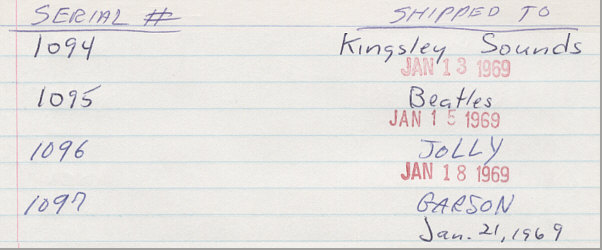 SERIAL # SHIPPED TO
1094 Kingsley Sounds
JAN 13 1969
1095 Beatles
JAN 15 1969
1096 JOLLY
JAN 18 1969
1097 GARSON
Jan. 21, 1969